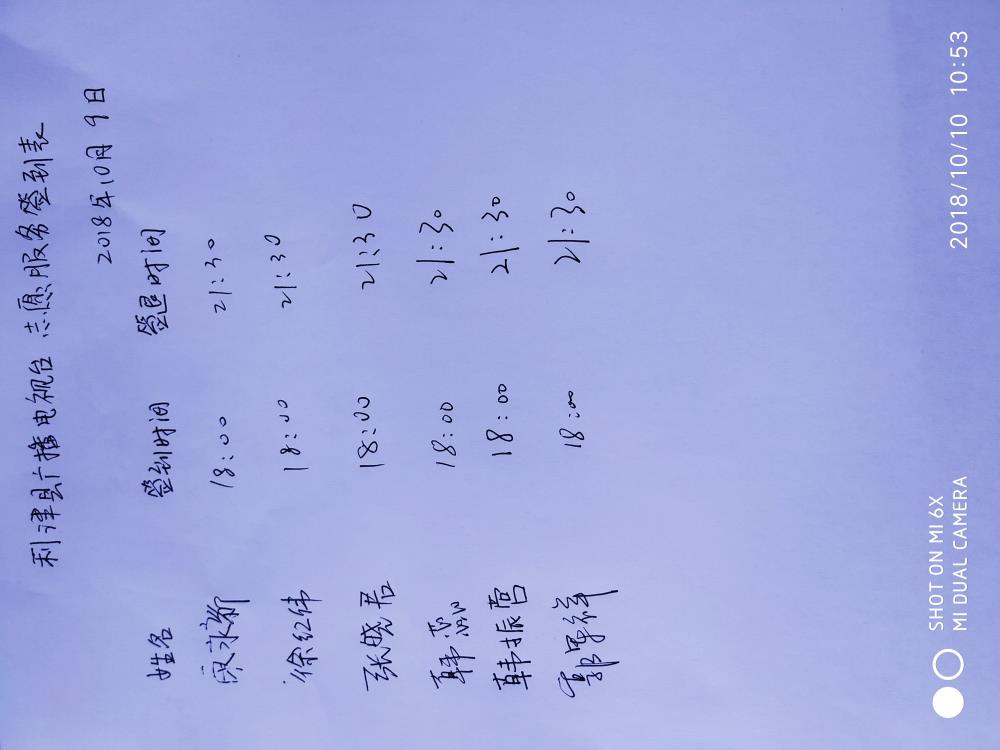 利津县广播电视台志愿服务签到表
2018年10月9日
姓名 签到时间 签退时间
18:00 21:30
徐红伟 18:00 21:30
张晓君 18:00 21:30
韩 18:00 21:30
韩振营 18:00 21:30
郭 祥 18:00 21:30
SHOT ON MI 6X
MI DUAL CAMERA
2018/10/10 10:53